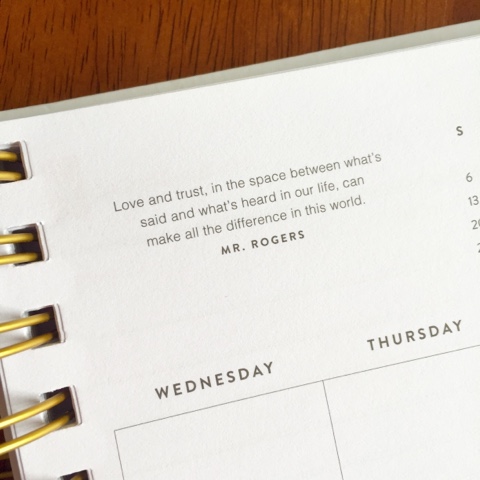 Love and trust, in the space between what's
said and what's heard in our life, can
make all the difference in this world.
MR. ROGERS
S
6
13
WEDNESDAY
THURSDAY